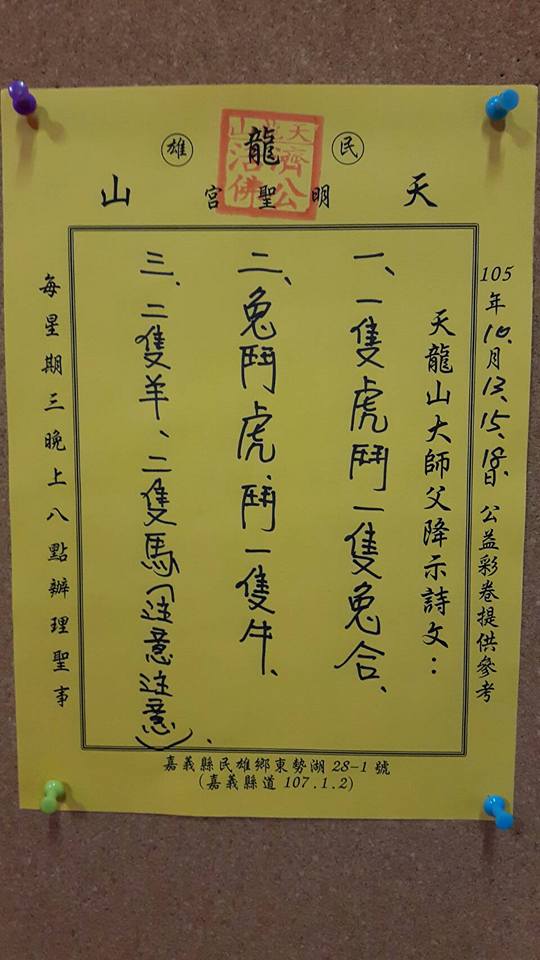 民雄
天龍山
明聖宮
天龍山
濟公
活佛
105年10月13、15、18日 公益彩卷提供參考
天龍山大師父降示詩文：
一、一隻虎鬥一隻兔合、
二、兔鬥虎、鬥一隻牛、
三、二隻羊、二隻馬（注意注意）、
每星期三晚上八點辦理聖事
嘉義縣民雄鄉東勢湖 28-1 號
(嘉義縣道 107.1.2)